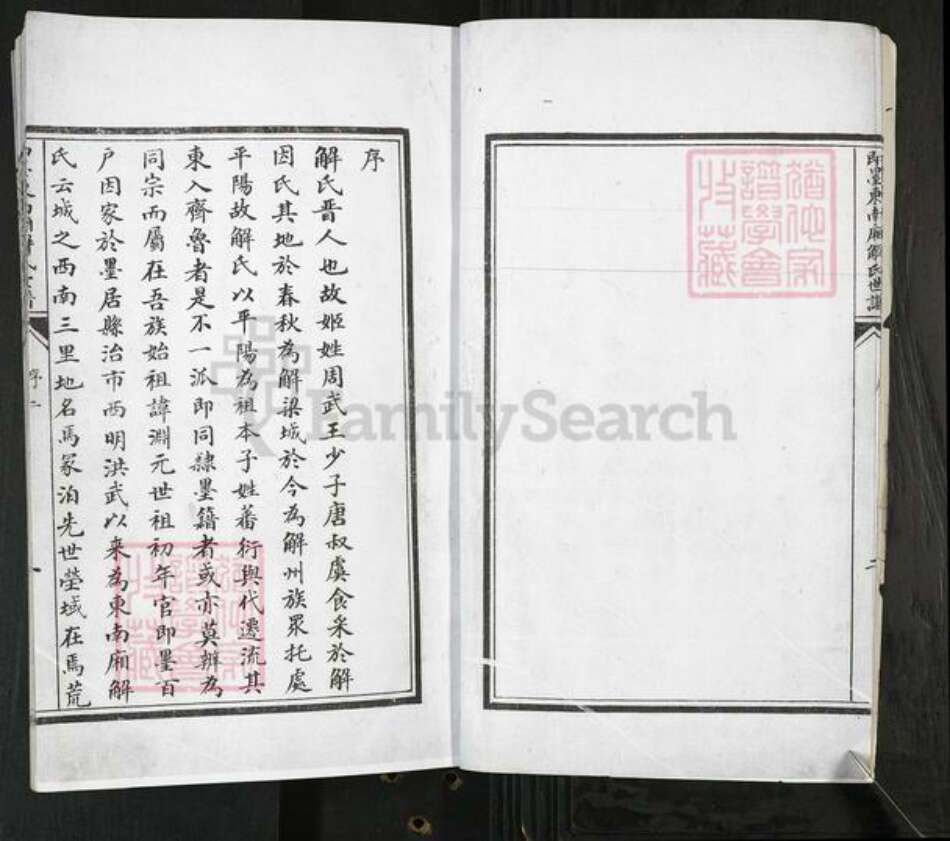 即墨東南廂解氏世譜
二
猶他家
譜學會
收藏
序
解氏晋人也故姬姓周武王少子唐叔虞食采於解
因氏其地於春秋為解梁城於今為解州族眾托處
平陽故解氏以平陽為祖本子姓蕃衍與代遷流其
東入齊魯者是不一派即同隸墨籍者或亦莫辦為
同宗而屬在吾族始祖諱淵元世祖初年官即墨百
户因家於墨居縣治市西明洪武以来為東南廂解
氏云城之西南三里地名馬冢泊先世塋域在焉荒
序
二
猶他家
譜學會
收藏
FamilySearch